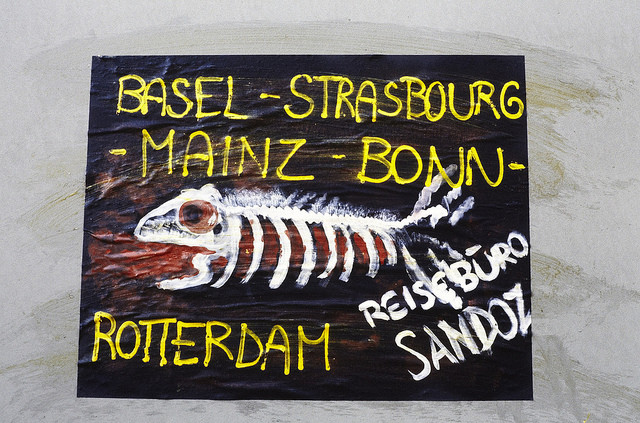 BASEL - STRASBOURG
- MAINZ - BONN -
REISEBÜRO
SANDOZ
ROTTERDAM